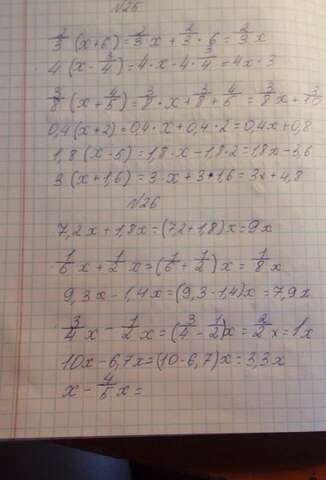 №25
2/3 (x+6) = 2/3 x + 2/3 · 6 = 2/3 x
4 (x - 3/4) = 4·x - 4·3/4 = 4x - 3
3/8 (x + 4/5) = 3/8 · x + 3/8 + 4/5 = 3/8 x + 3/10
0,4(x+2) = 0,4·x + 0,4·2 = 0,4x + 0,8
1,8 (x - 5) = 1,8·x - 1,8·2 = 1,8x - 3,6
3 (x + 1,6) = 3·x + 3·1,6 = 3x + 4,8
№26
7,2x + 1,8x = (7,2 + 1,8)x = 9x
1/6 x + 1/2 x = (1/6 + 1/2) x = 1/8 x
9,3x - 1,4x = (9,3 - 1,4)x = 7,9x
3/4 x - 1/2 x = (3/4 - 1/2)x = 2/2 x = 1x
10x - 6,7x = (10 - 6,7)x = 3,3x
x - 4/5 x =